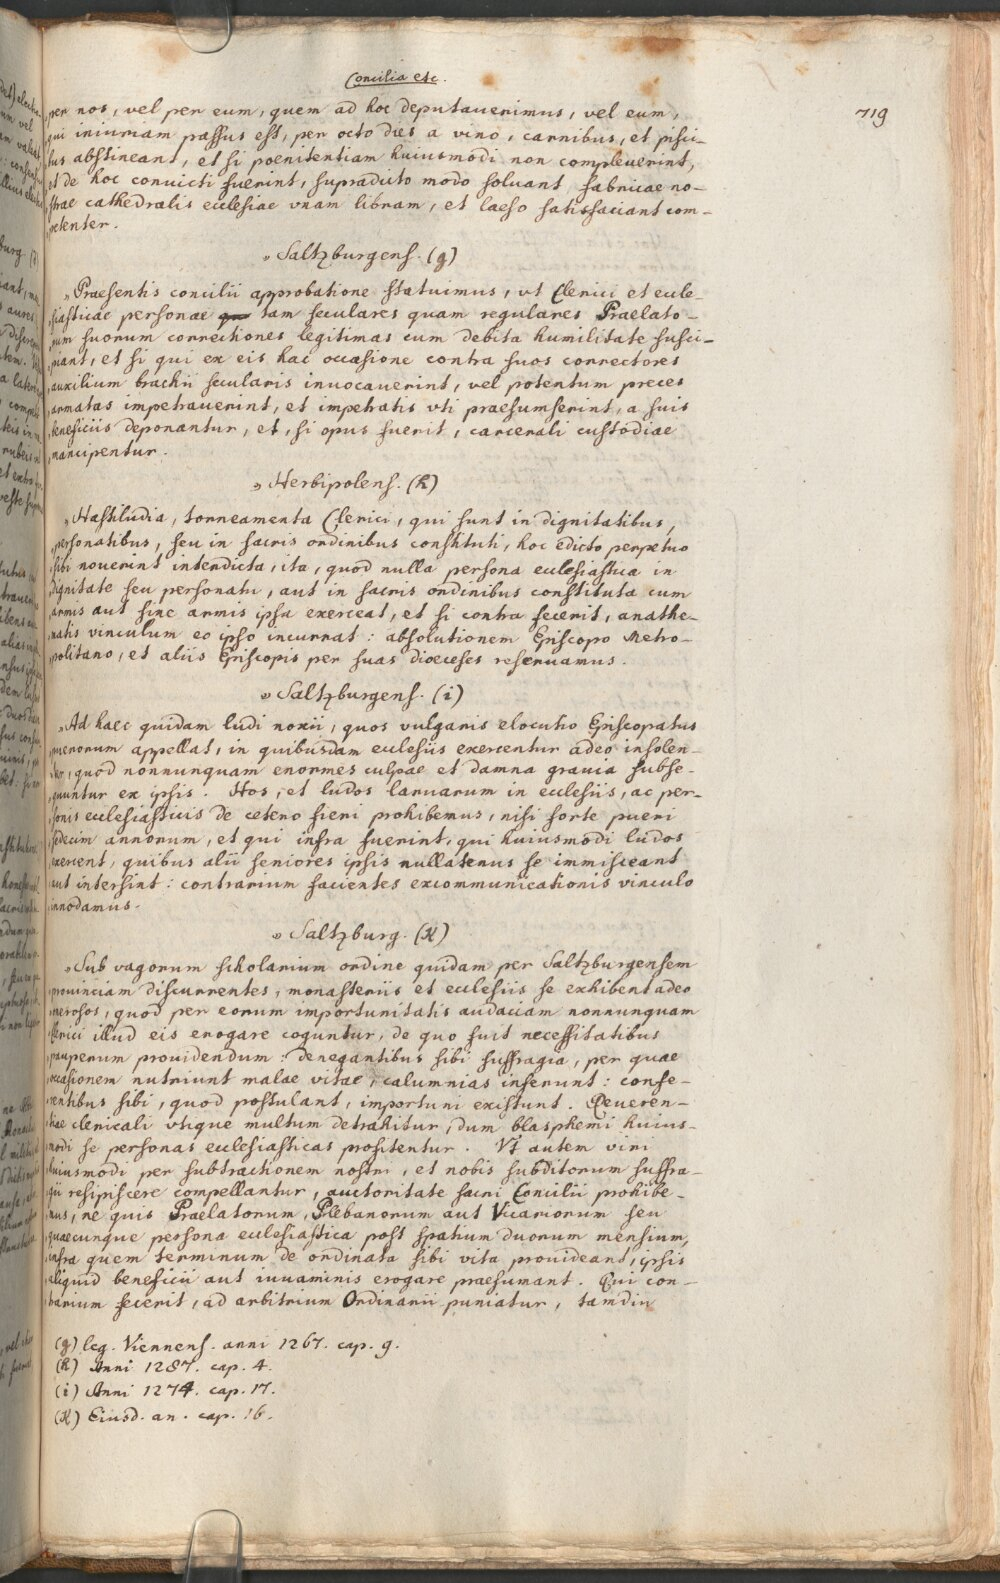 Concilia etc.
719
per nos, vel per eum, quem ad hoc deputauerimus, vel eum,
qui iniuriam passus est, per octo dies a vino, carnibus, et pisci-
bus abstineant, et si poenitentiam huiusmodi non compleuerint,
et de hoc conuicti fuerint, supradicto modo soluant fabricae no-
strae cathedralis ecclesiae vnam libram, et laeso satisfaciant com-
petenter.
„Saltzburgens. (g)
„Praesentis concilii approbatione statuimus, vt Clerici et eccle-
siasticae personae tam seculares quam regulares Praelato-
rum suorum correctiones legitimas cum debita humilitate susci-
piant, et si qui ex eis hac occasione contra suos correctores
auxilium brachii secularis inuocauerint, vel potentum preces
armatas impetrauerint, et impetratis vti praesumserint, a suis
beneficiis deponantur, et, si opus fuerit, carcerali custodiae
mancipentur.
„Herbipolens. (h)
„Hastiludia, torneamenta Clerici, qui sunt in dignitatibus,
personatibus, seu in sacris ordinibus constituti, hoc edicto perpetuo
sibi nouerint interdicta, ita, quod nulla persona ecclesiastica in
dignitate seu personatu, aut in sacris ordinibus constituta cum
armis aut sine armis ipsa exerceat, et si contra fecerit, anathe-
matis vinculum eo ipso incurrat: absolutionem Episcopo Metro-
politano, et aliis Episcopis per suas dioeceses reseruamus.
„Saltzburgens. (i)
„Ad haec quidam ludi noxii, quos vulgaris elocutio Episcopatus
puerorum appellat, in quibusdam ecclesiis exercentur adeo insolen-
ter, quod nonnunquam enormes culpae et damna grauia subse-
quuntur ex ipsis. Hos, et ludos laruarum in ecclesiis, ac per-
sonis ecclesiasticis de cetero fieri prohibemus, nisi forte pueri
sedecim annorum, et qui infra fuerint, qui huiusmodi ludos
exercent, quibus alii seniores ipsis nullatenus se immisceant
aut intersint: contrarium facientes excommunicationis vinculo
innodamus.
„Saltzburg. (K)
„Sub vagorum scholarium ordine quidam per Saltzburgensem
prouinciam discurrentes, monasteriis et ecclesiis se exhibent adeo
onerosos, quod per eorum importunitatis audaciam nonnunquam
Clerici illud eis erogare coguntur, de quo fuit necessitatibus
pauperum prouidendum: denegantibus sibi suffragia, per quae
occasionem nutriunt malae vitae, calumnias inferunt: confe-
rentibus sibi, quod postulant, importuni existunt. Reueren-
tiae clericali vtique multum detrahitur, dum blasphemi huius-
modi se personas ecclesiasticas profitentur. Vt autem viri
huiusmodi per subtractionem nostri, et nobis subditorum suffra-
gii resipiscere compellantur, auctoritate sacri Concilii prohibe-
mus, ne quis Praelatorum, Plebanorum aut Vicariorum seu
quaecunque persona ecclesiastica post spatium duorum mensium,
infra quem terminum de ordinata sibi vita prouideant, ipsis
aliquid beneficii aut iuuaminis erogare praesumant. Qui con-
trarium fecerit, ad arbitrium Ordinarii puniatur, tamdiu
(g) leg. Viennens. anni 1267. cap. 9.
(h) Anni 1287. cap. 4.
(i) Anni 1274. cap. 17.
(K) Eiusd. an. cap. 16.